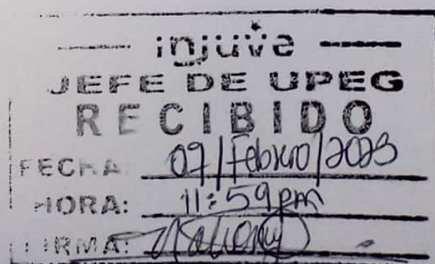 injuve
JEFE DE UPEG
RECIBIDO
FECHA: 07/Febrero/2023
HORA: 11:59 pm
FIRMA: